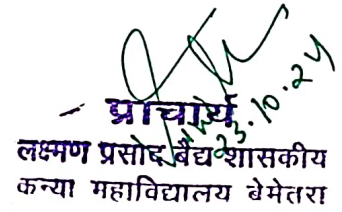 23.10.24
प्राचार्य
लक्ष्मण प्रसाद बैद्य शासकीय
कन्या महाविद्यालय बेमेतरा